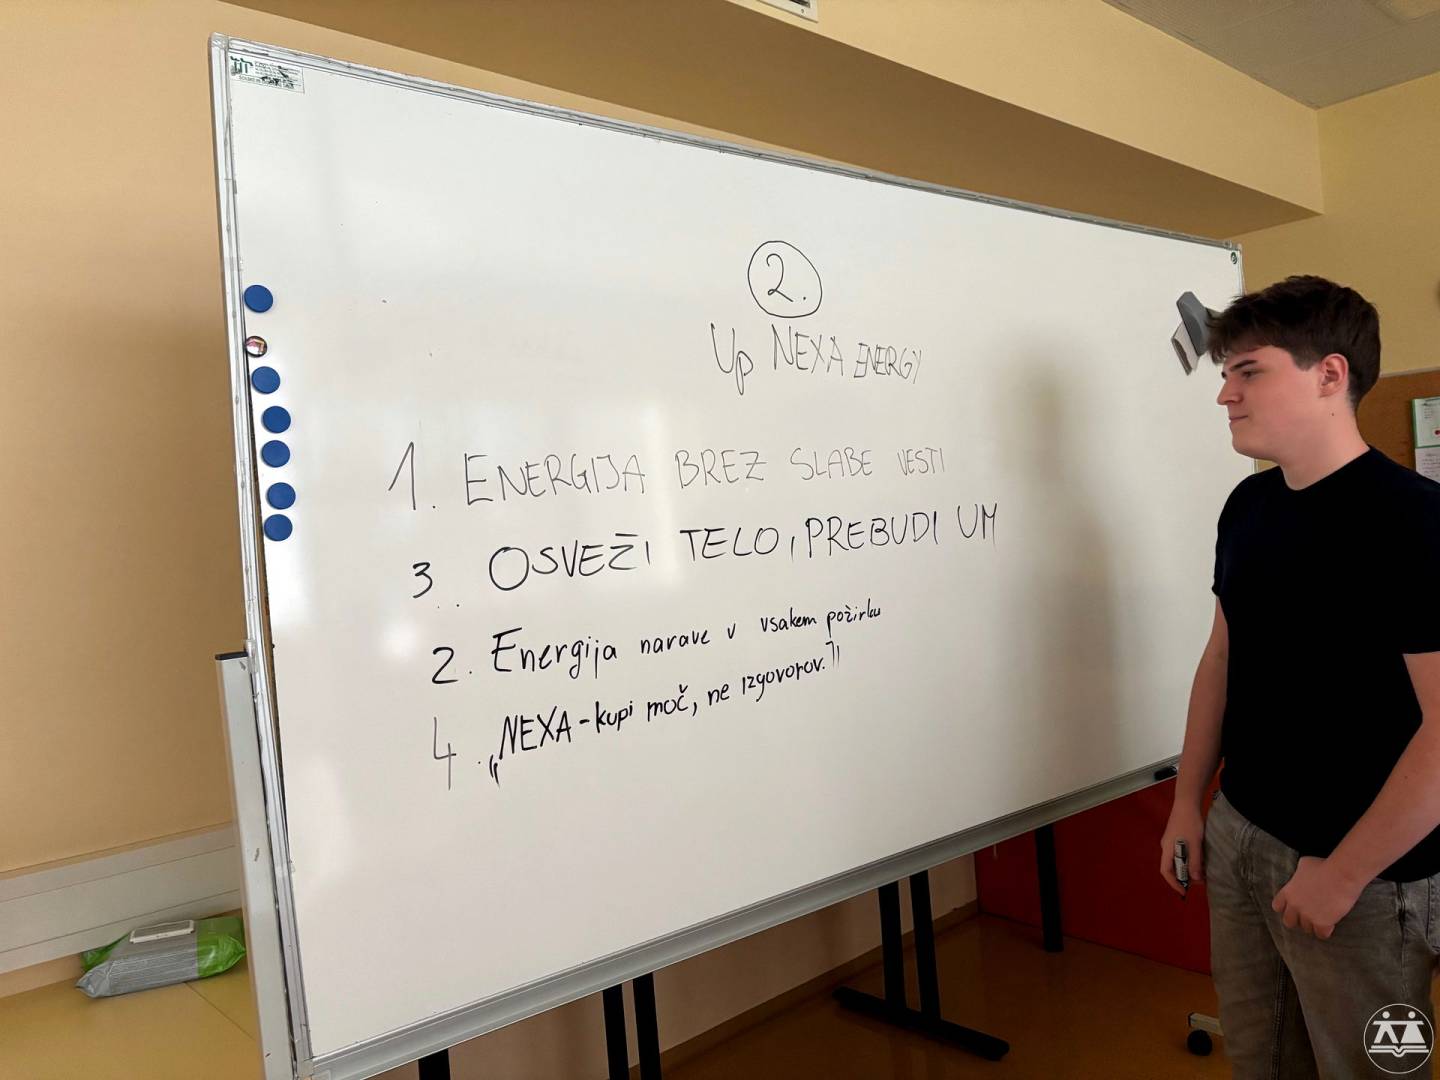 2.
Up NEXA ENERGY
1. ENERGIJA BREZ SLABE VESTI
3. OSVEŽI TELO, PREBUDI UM
2. Energija narave v vsakem požirku
4. „NEXA-kupi moč, ne izgovorov."